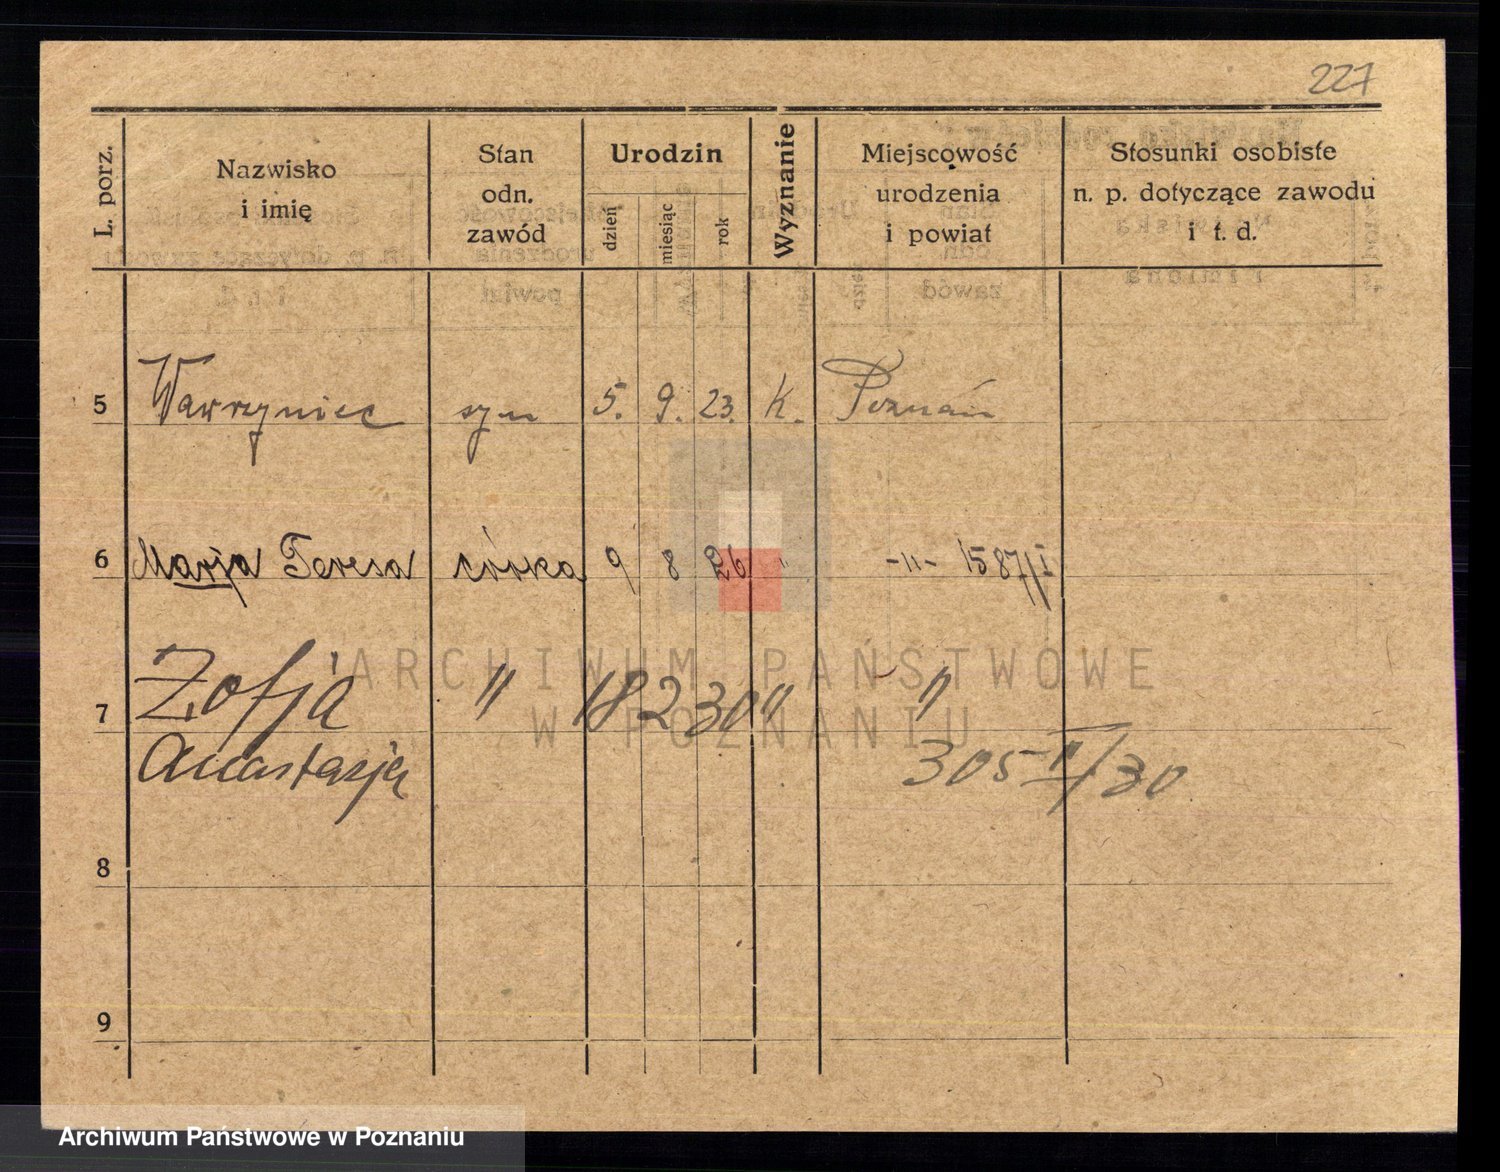 227
L. porz.
Nazwisko
i imię
Stan
odn.
zawód
Urodzin
dzień
miesiąc
rok
Wyznanie
Miejscowość
urodzenia
i powiat
Stosunki osobiste
n. p. dotyczące zawodu
i t. d.
5 Wawrzyniec syn 5. 9. 23. K. Poznań
6 Marja Teresa córka 9 8 26 " -"- 1587/I
7 Zofja " 18 2 30 " "
Anastazja 305 II/30
8
9
ARCHIWUM PAŃSTWOWE
W POZNANIU
Archiwum Państwowe w Poznaniu